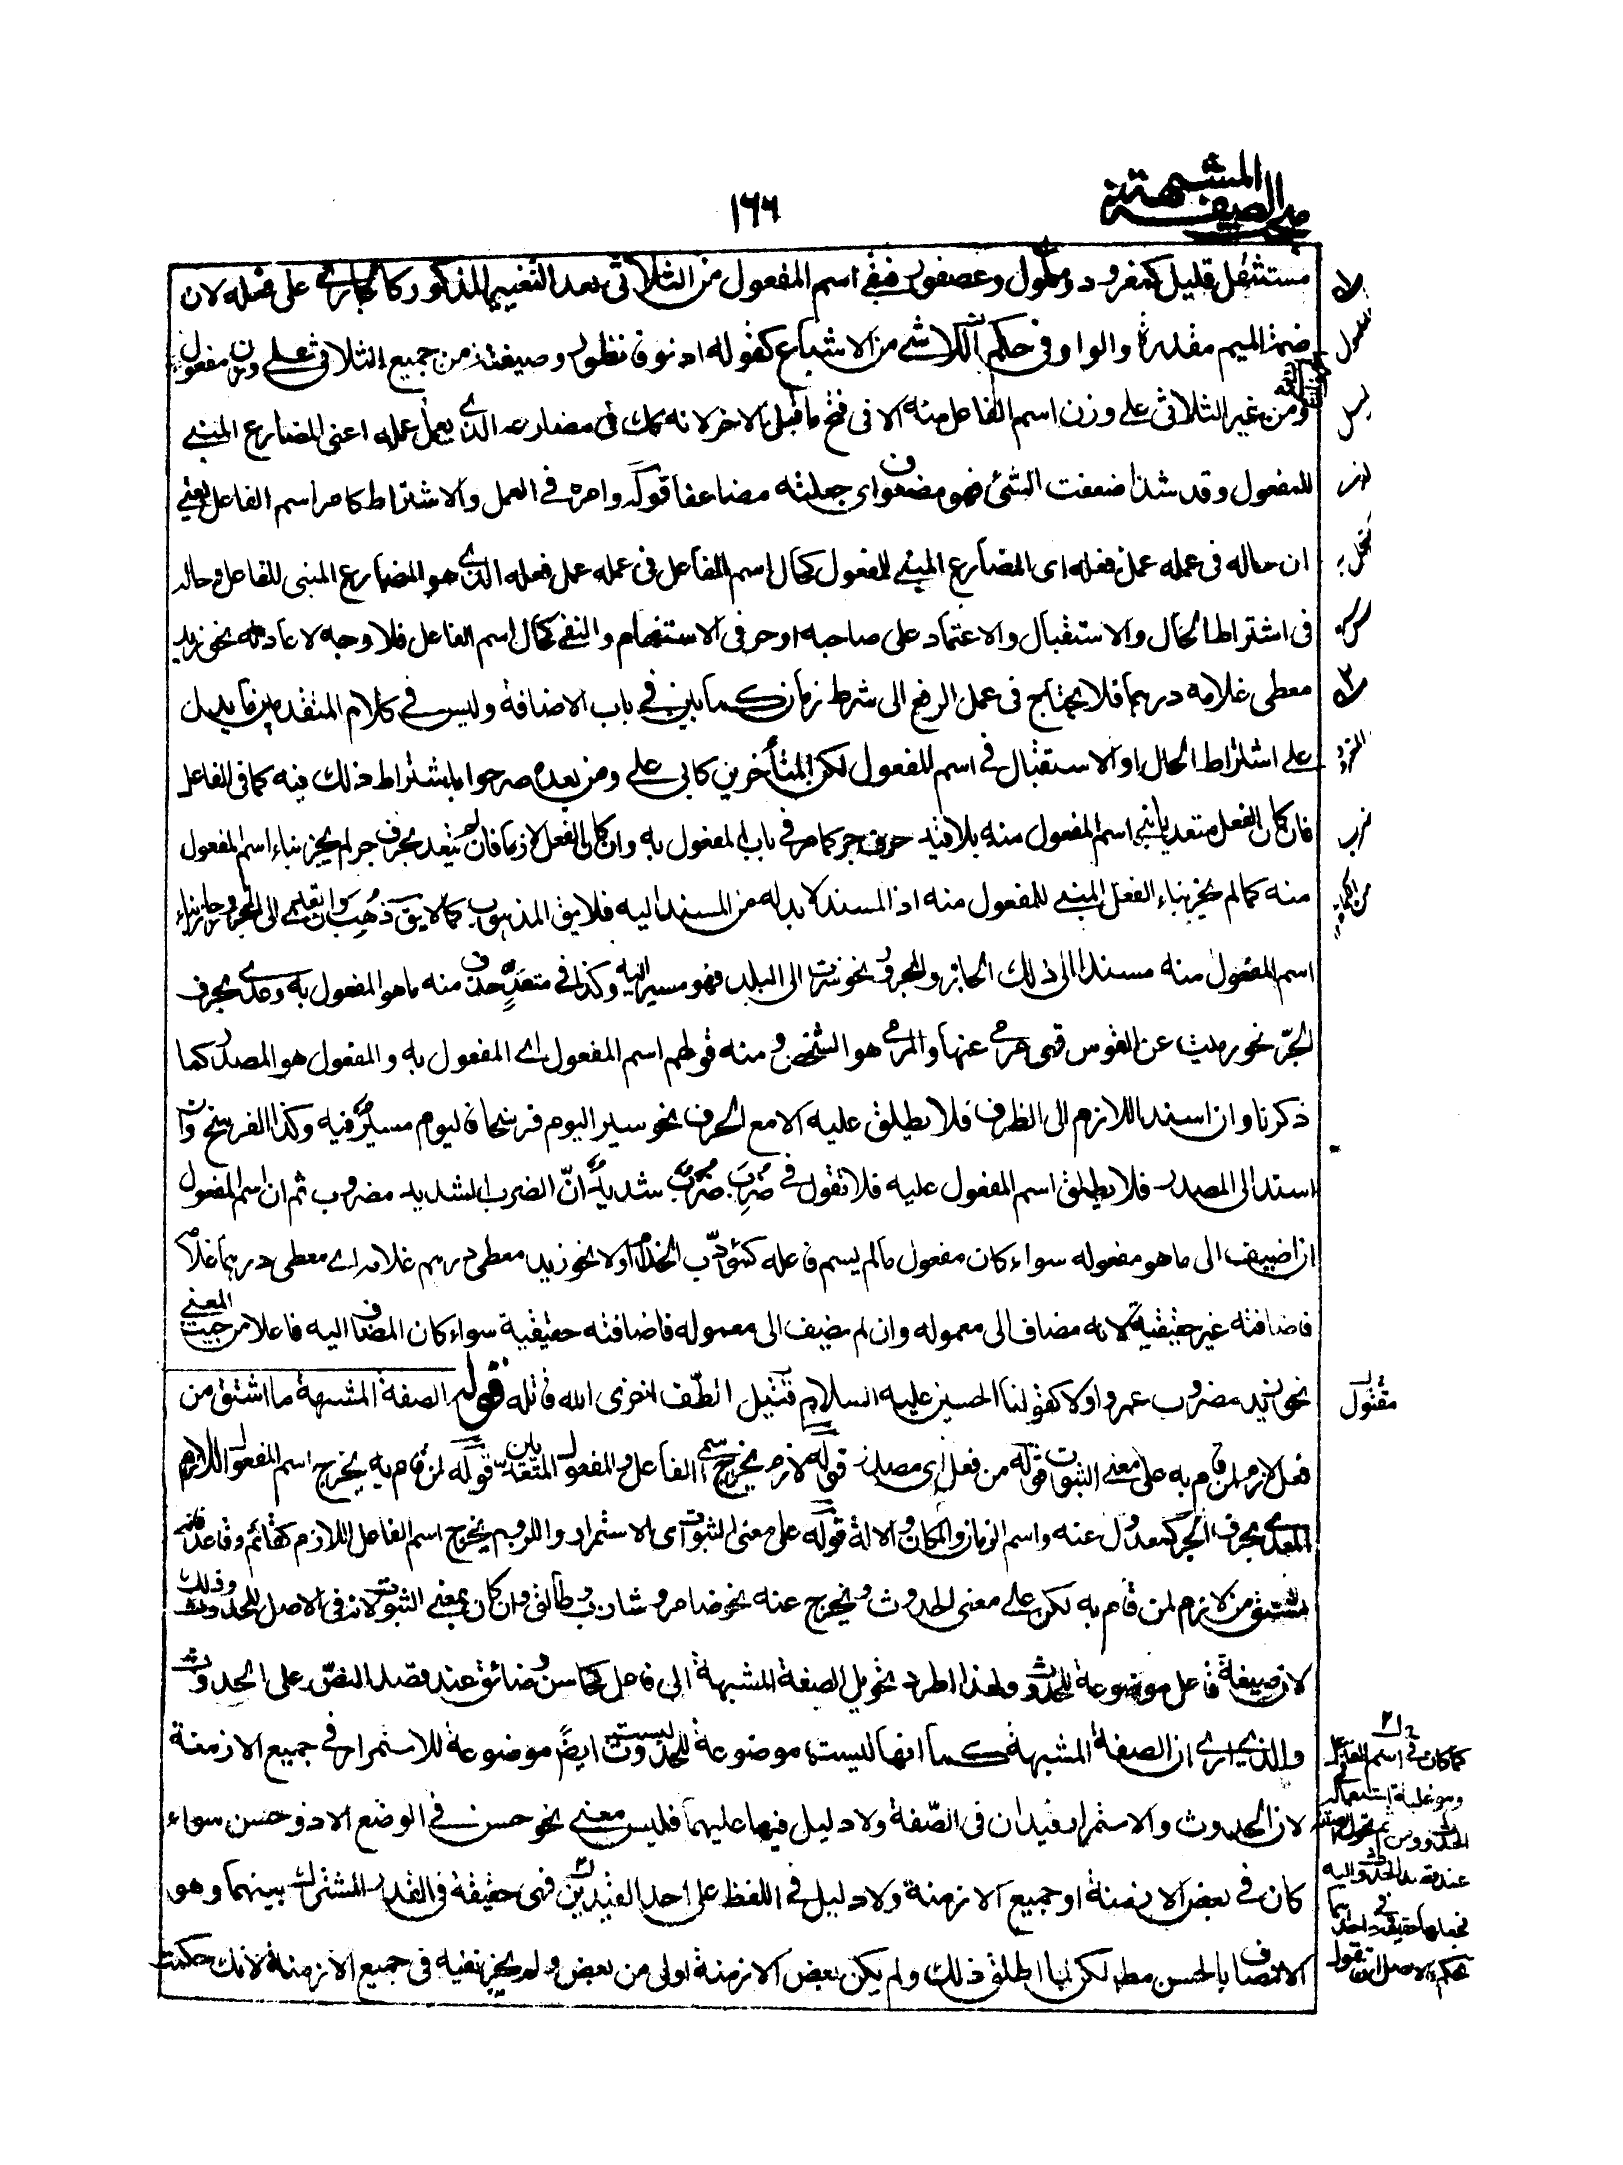 الصفة المشبهة
١٦٦
مستثقل قليل كمغرود وملمول وعصفور فبقي اسم المفعول من الثلاثي بعد التغيير المذكور كالجاري على فعله لان
ضمة الميم مقدرة والواو في حكم الناشي من الاشباع كقوله ادنو فانظور وصيغته من جميع الثلاثي على وزن مفعول
ومن غير الثلاثي على وزن اسم الفاعل منه الا في فتح ما قبل الاخر لانه كذلك في مضارعه الذي يعمل عمله اعني المضارع المبني
للمفعول وقد شذ اضعفت الشئ فهو مضعوف اي جعلته مضاعفا قوله وامره في العمل والاشتراط كامر اسم الفاعل يعني
ان حاله في عمله عمل فعله اي المضارع المبني للمفعول كحال اسم الفاعل في عمله عمل فعله الذي هو المضارع المبني للفاعل وحاله
في اشتراط الحال والاستقبال والاعتماد على صاحبه او حرفي الاستفهام والنفي كحال اسم الفاعل فلا وجه لاعادته نحو زيد
معطى غلامه درهما فلا يحتاج في عمل الرفع الى شرط زمان كما تبين في باب الاضافة وليس في كلام المتقدمين ما يدل
على اشتراط الحال او الاستقبال في اسم المفعول لكن المتأخرين كابي علي ومن بعده صرحوا باشتراط ذلك فيه كما في الفاعل
فان كان الفعل متعديا بني اسم المفعول منه بلا قيد حرف جر كما مر في باب المفعول به وان كان الفعل لازما فان لم يتعد بحرف جر لم يجز بناء اسم المفعول
منه كما لم يجز بناء الفعل المبني للمفعول منه اذ المسند لا بد له من المسند اليه فلا يق المذهوب كما لا يق ذُهِبَ وان تعدى الى المجرور جاز بناء
اسم المفعول منه مسندا الى ذلك الجار والمجرور نحو سرت الى البلد فهو مسير اليه وكذا في متعدٍّ حذف منه ما هو المفعول به وعدي بحرف
الجرّ نحو رميت عن القوس فهي مرمي عنها والمرمي هو الشخص ومنه قولهم اسم المفعول اي المفعول به والمفعول هو المصدر كما
ذكرنا وان اسند اللازم الى الظرف فلا يطلق عليه الا مع الحرف نحو سير اليوم فرسخا فاليوم مسير فيه وكذا الفرسخ وان
اسند الى المصدر فلا يطلق اسم المفعول عليه فلا تقول في ضُرِبَ ضَربٌ شديدٌ انّ الضرب الشديد مضروب ثم ان اسم المفعول
اذا ضيف الى ما هو مفعوله سواء كان مفعول ما لم يسم فاعله كمؤدّب الخدام او لا نحو زيد معطى درهم غلامه اي معطى درهما غلامه
فاضافته غير حقيقية لانه مضاف الى معموله وان لم يضف الى معموله فاضافته حقيقية سواء كان المضاف اليه فاعلا من حيث المعنى
نحو زيد مضروب عمرو او لا كقولنا الحسين عليه السلام قتيل الطّف اخزى الله قاتله قوله الصفة المشبهة ما اشتق من
مقتول
فعل لازم لمن قام به على معنى الثبوت قوله من فعل اي مصدر قوله لازم يخرج اسمي الفاعل والمفعول المتعديين قوله لمن قام به يخرج اسم المفعول اللازم
المعدى بحرف الجر كمعدول عنه واسم الزمان والمكان والالة قوله على معنى الثبوت اي الاستمرار واللزوم يخرج اسم الفاعل اللازم كقائم وقاعد فانه
مشتق من لازم لمن قام به لكن على معنى الحدوث ويخرج عنه نحو ضامر وشازب وطالق وان كان بمعنى الثبوت لانه في الاصل للحدوث وذلك
لان صيغة فاعل موضوعة للحدوث ولهذا اطرد تحويل الصفة المشبهة الى فاعل كحاسن وضائق عند قصد النصّ على الحدوث
والذي ارى ان الصفة المشبهة كما انها ليست موضوعة للحدوث ليست ايضً موضوعة للاستمرار في جميع الازمنة
لان الحدوث والاستمرار قيدان في الصّفة ولا دليل فيها عليهما فليس معنى نحو حسن في الوضع الا ذو حسن سواء
كان في بعض الازمنة او جميع الازمنة ولا دليل في اللفظ على احد القيدين فهي حقيقة في القدر المشترك بينهما وهو
الاتصاف بالحسن مطه لكن لما اطلق ذلك ولم يكن بعض الازمنة اولى من بعض ولم يجز نفيه في جميع الازمنة لانك حكمت
كما كان في اسم الفاعل